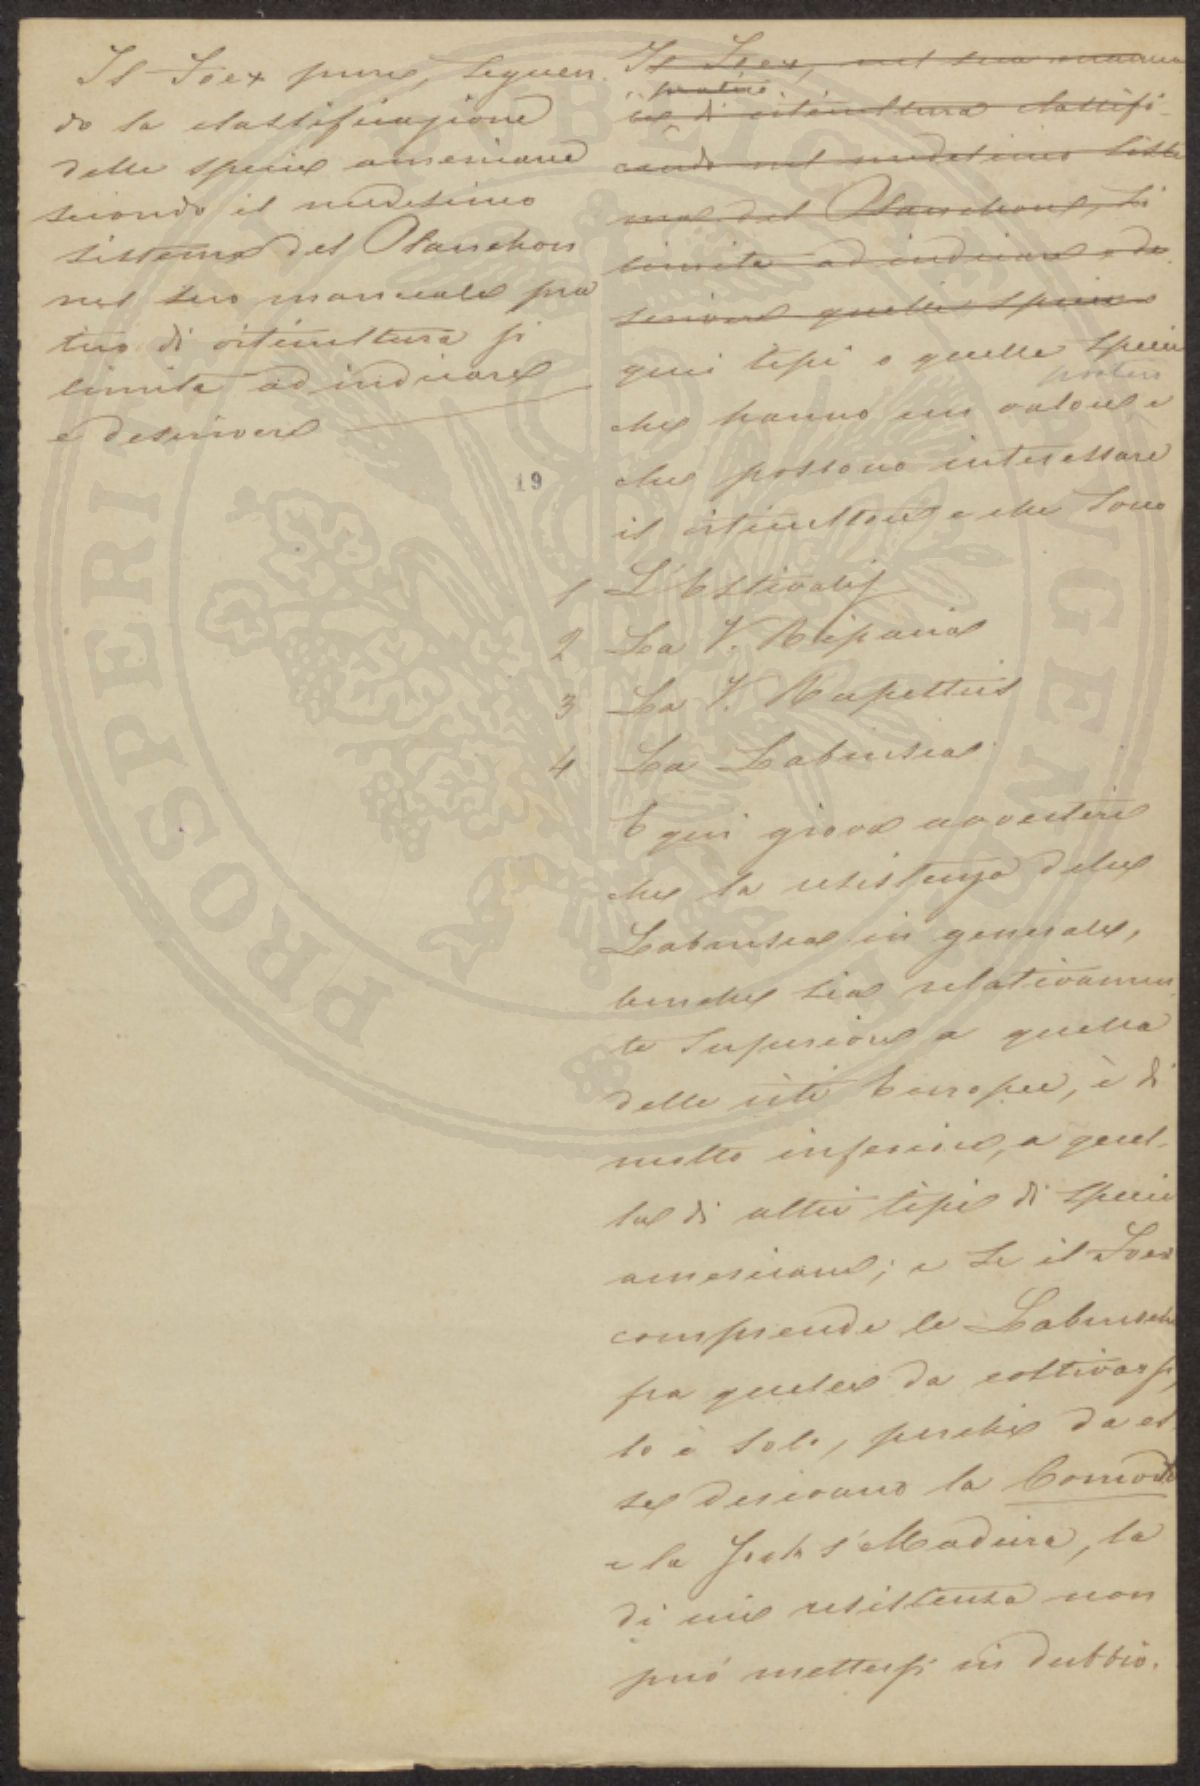 Il Foex pure, seguen-
do la classificazione
delle specie americane
secondo il medesimo
sistema del Planchon
nel suo manuale pra
tico di viticultura si
limita ad indicare
e descrivere
Il Foex, nel suo manua
pratico
le di viticultura classifi-
cando nel medesimo siste
ma del Planchon, si
limita ad indicare e de
scrivere quelle specie
quei tipi o quelle specie
che hanno un valore pratico e
che possono interessare
il viticultore e che sono
19
1 L'Estivalis
2 La V. Riparia
3 La V. Rupestris
4 La Labrusca
E qui giova avvertire
che la resistenza delle
Labrusca in generale,
benche sia relativamen
te superiore a quella
delle viti Europee, è di
molto inferiore, a quel-
la di altri tipi di specie
americane; e se il Foex
comprende le Labrusche
fra quelle da coltivarsi,
lo è solo, perchè da es
se derivano la Concord
e la York's Madeira, la
di cui resistenza non
può mettersi in dubbio.
PROSPERITÀ PUBBLICA